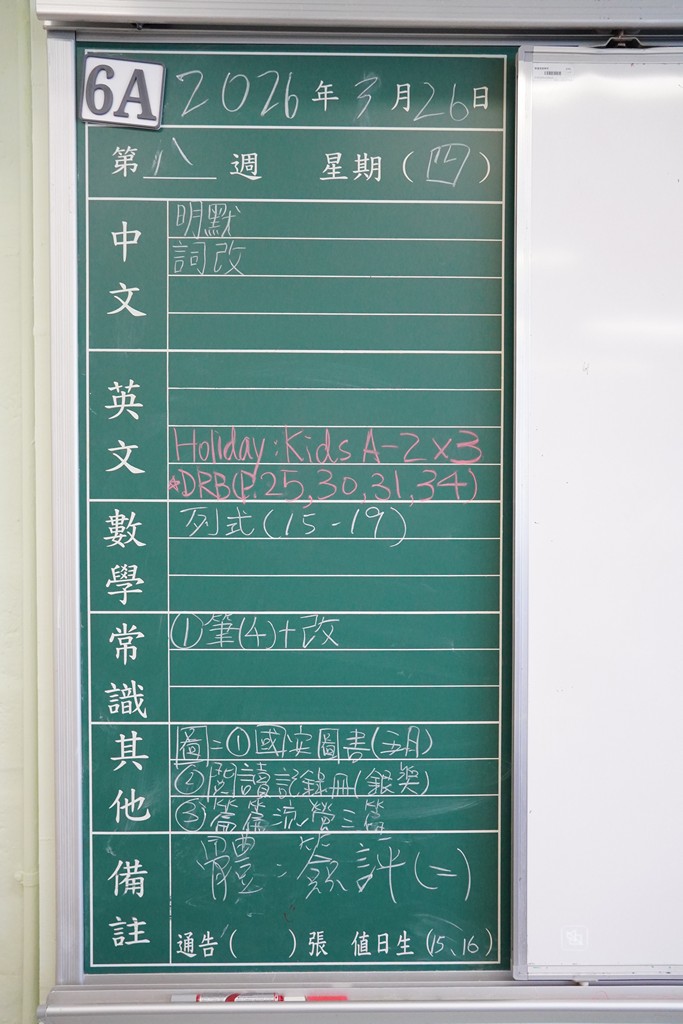 6A 2026年3月26日
第八週 星期(四)
中文
明默
詞改
英文
Holiday: Kids A-2 x3
*DRB(P.25,30,31,34)
數學
列式(15-19)
常識
①筆(4)+改
其他
圖:①國安圖書(五月)
②閱讀記錄冊(銀獎)
③篇篇流螢三篇
備註
體:簽評(二)
通告( )張 值日生(15、16)